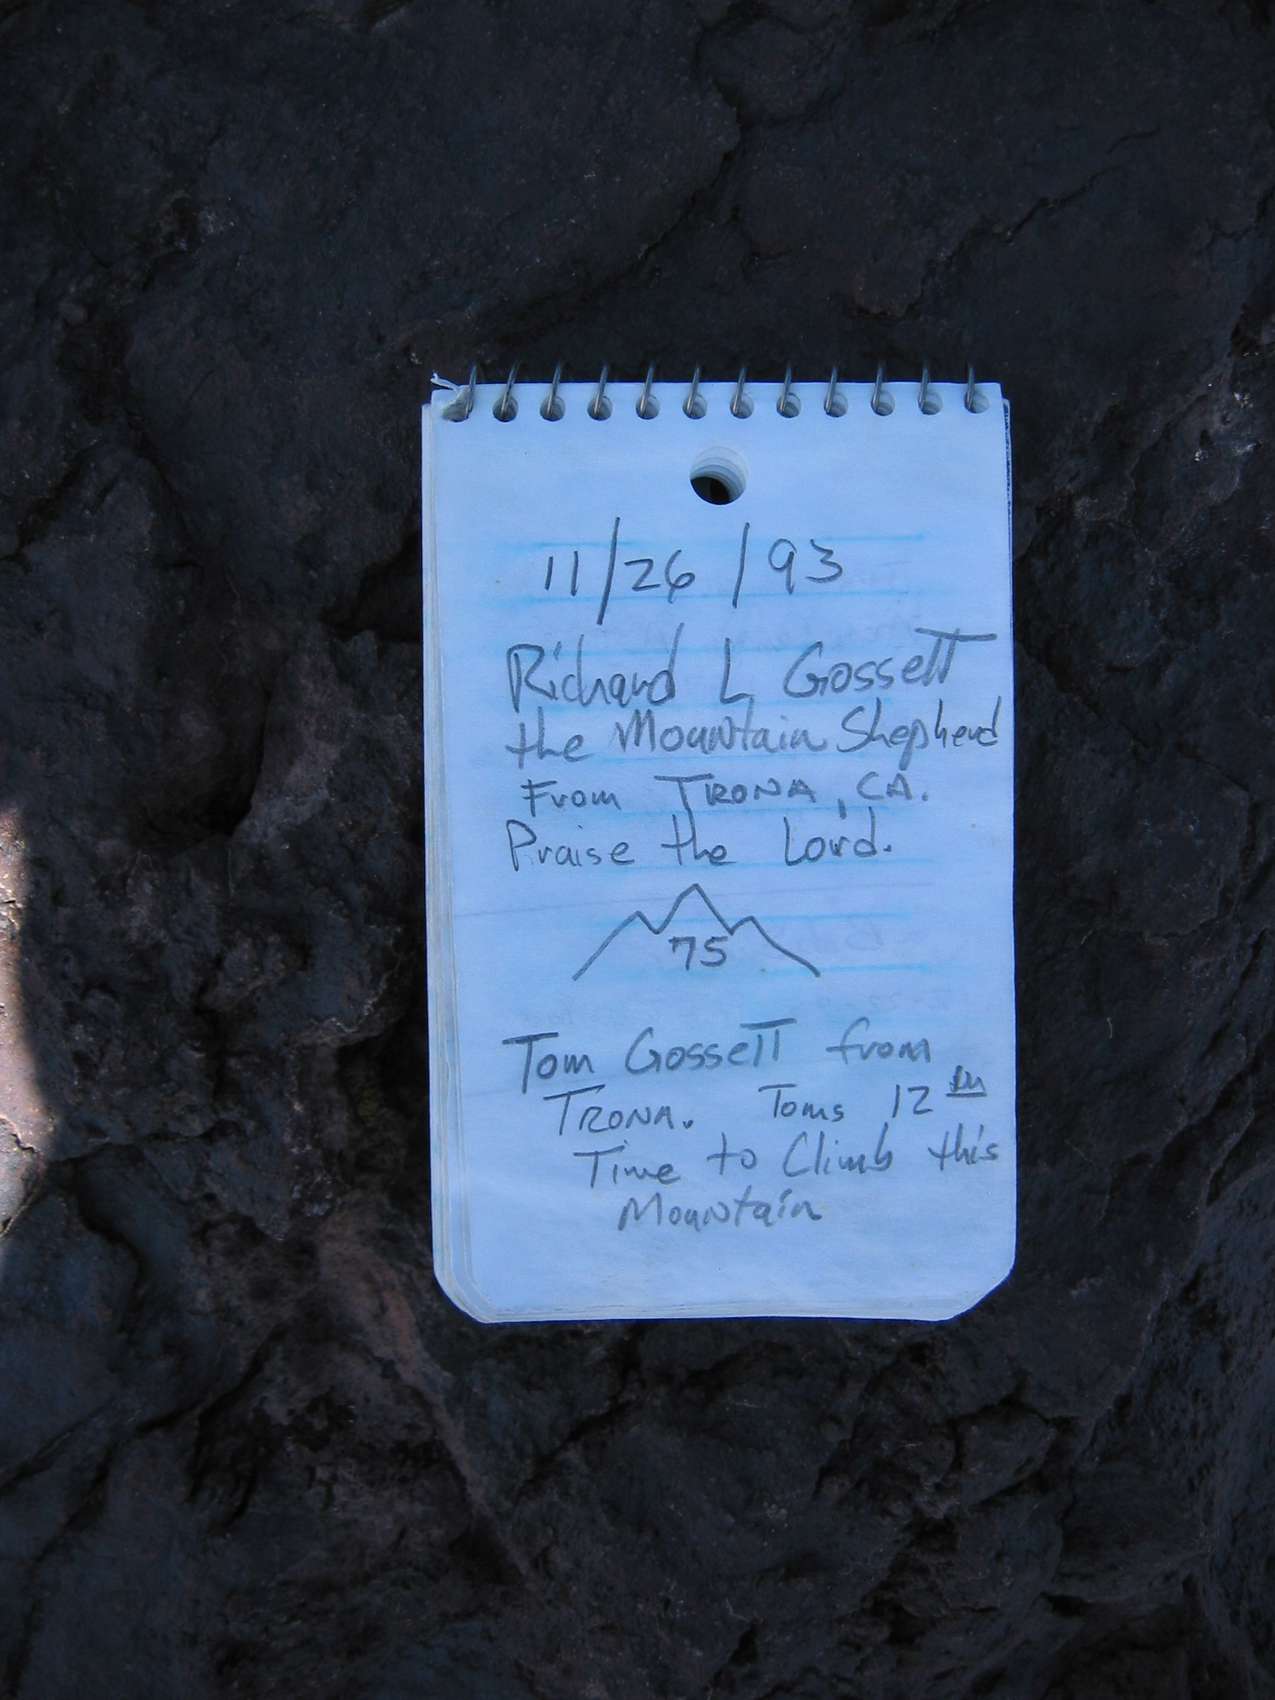 11/26/93
Richard L Gossett
the Mountain Shepherd
From TRONA, CA.
Praise the Lord.
75
Tom Gossett from
TRONA. Toms 12th
Time to Climb this
Mountain